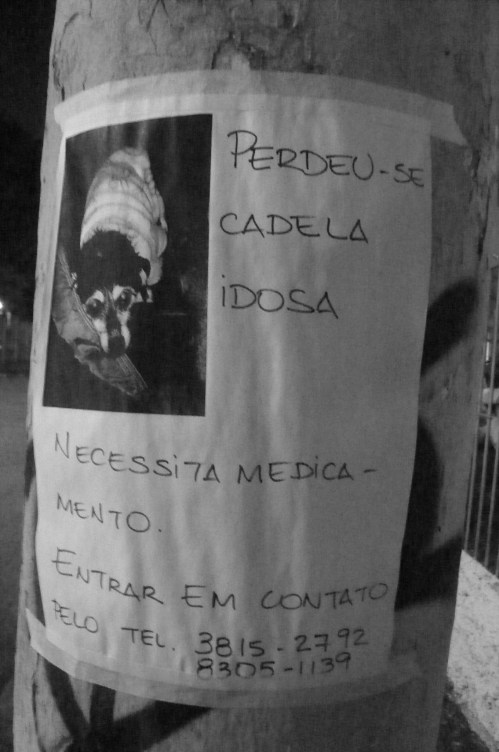 PERDEU-SE
CADELA
IDOSA
NECESSITA MEDICA-
MENTO.
ENTRAR EM CONTATO
PELO TEL. 3815-2792
8305-1139